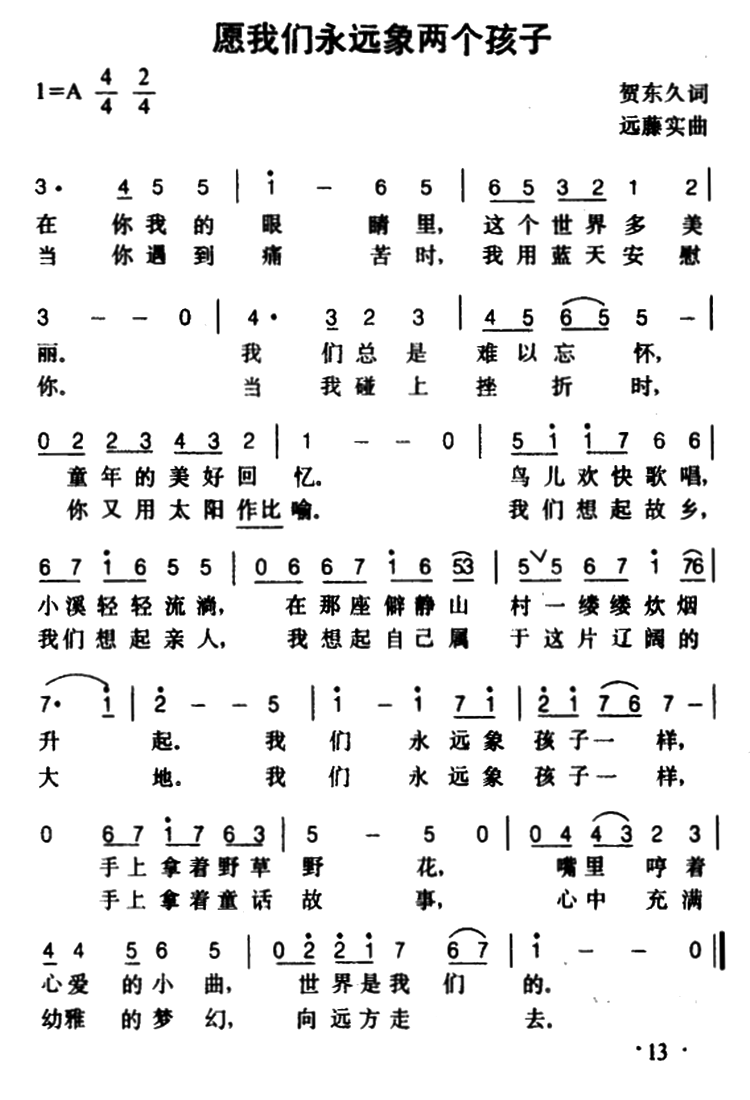 愿我们永远象两个孩子
1=A 4/4 2/4
贺东久词
远藤实曲
3· 4 5 5 | i - 6 5 | 6 5 3 2 1 2 |
在 你我的 眼 睛里, 这个世界多美
当 你遇到 痛 苦时, 我用蓝天安慰
3 - - 0 | 4· 3 2 3 | 4 5 6 5 5 - |
丽. 我 们总是 难以忘 怀,
你. 当 我碰上 挫 折 时,
0 2 2 3 4 3 2 | 1 - - 0 | 5 i i 7 6 6 |
童年的美好回 忆. 鸟儿欢快歌唱,
你又用太阳作比 喻. 我们想起故乡,
6 7 i 6 5 5 | 0 6 6 7 i 6 53 | 5 ∨ 5 6 7 i 76 |
小溪轻轻流淌, 在那座僻静山 村一缕缕炊烟
我们想起亲人, 我想起自己属 于这片辽阔的
7· i | 2 - - 5 | i - i 7 i | 2 i 7 6 7 - |
升 起. 我 们 永远象 孩子一 样,
大 地. 我 们 永远象 孩子一 样,
0 6 7 i 7 6 3 | 5 - 5 0 | 0 4 4 3 2 3 |
手上拿着野草 野 花, 嘴里 哼着
手上拿着童话 故 事, 心中 充满
4 4 5 6 5 | 0 2 2 i 7 6 7 | i - - 0 ‖
心爱 的小曲, 世界是我 们 的.
幼雅 的梦幻, 向远方走 去.
·13·